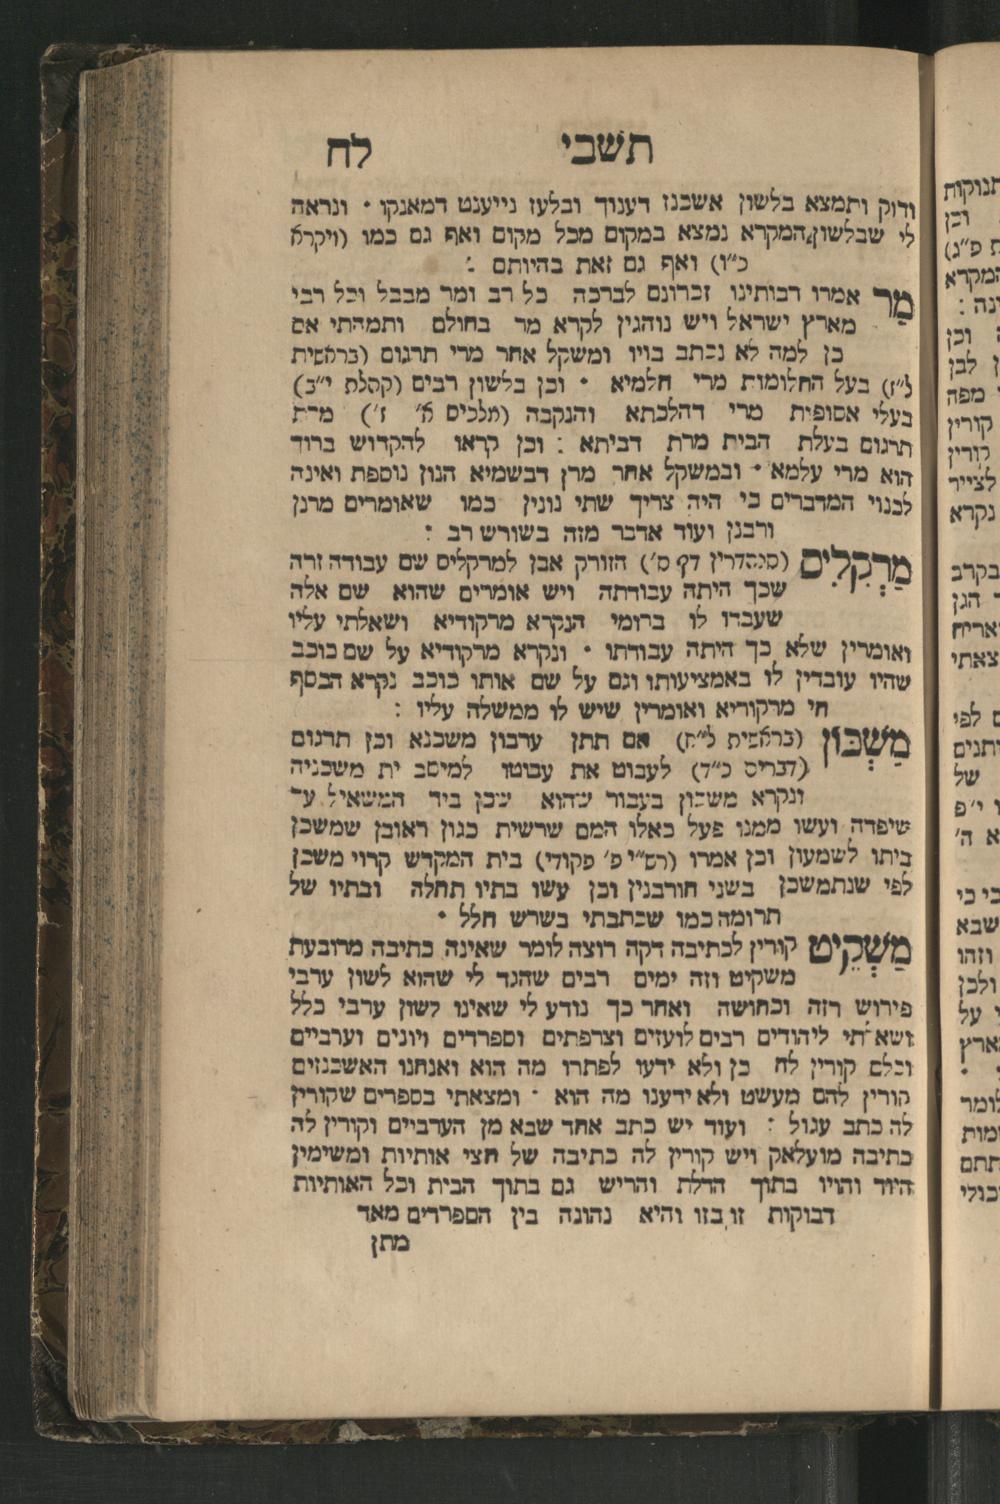 תשבי לח
ודוק ותמצא בלשון אשכנז דענוך ובלעז נייענט דמאנקו · ונראה
לי שבלשון המקרא נמצא במקום מכל מקום ואף גם כמו (ויקרא
כ״ו) ואף גם זאת בהיותם :
מַר אמרו רבותינו זכרונם לברכה כל רב ומר מבבל וכל רבי
מארץ ישראל ויש נוהגין לקרא מר בחולם ותמהתי אם
כן למה לא נכתב בויו ומשקל אחר מרי תרגום (בראשית
ל״ז) בעל החלומות מרי חלמיא · וכן בלשון רבים (קהלת י״ב)
בעלי אסופית מרי דהלכתא והנקבה (מלכים א׳ ז׳) מרת
תרגום בעלת הבית מרת דביתא : וכן קראו להקדוש ברוך
הוא מרי עלמא · ובמשקל אחר מרן דבשמיא הנון נוספת ואינה
לכנוי המדברים כי היה צריך שתי נונין כמו שאומרים מרנן
ורבנן ועוד אדבר מזה בשורש רב :
מַרְקִלִים (סנהדרין דף ס׳) הזורק אבן למרקלים שם עבודה זרה
שכך היתה עבודתה ויש אומרים שהוא שם אלה
שעבדו לו ברומי הנקרא מרקודיא ושאלתי עליו
ואומרין שלא כך היתה עבודתו · ונקרא מרקודיא על שם כוכב
שהיו עובדין לו באמציעותו וגם על שם אותו כוכב נקרא הכסף
חי מרקוריא ואומרין שיש לו ממשלה עליו :
מַשְׁכּוֹן (בראשית ל״ח) אם תתן ערבון משכנא וכן תרגום
(דברים כ״ד) לעבוט את עבוטו למיסב ית משכניה
ונקרא משכון בעבור שהוא שכן ביד המשאיל עד
שיפדה ועשו ממנו פעל כאלו המם שרשית כגון ראובן שמשכן
ביתו לשמעון וכן אמרו (רש״י פ׳ פקודי) בית המקדש קרוי משכן
לפי שנתמשכן בשני חורבנין וכן עשו בתיו תחלה ובתיו של
תרומה כמו שכתבתי בשרש חלל ·
מַשְׁקֵיט קורין לכתיבה דקה רוצה לומר שאינה כתיבה מרובעת
משקיט וזה ימים רבים שהגד לי שהוא לשון ערבי
פירוש רזה וכחושה ואחר כך נודע לי שאינו לשון ערבי כלל
ושאלתי ליהודים רבים לועזים וצרפתים וספרדים ויונים וערביים
וכלם קורין לה כן ולא ידעו לפתרו מה הוא ואנחנו האשכנזים
קורין להם מעשט ולא ידענו מה הוא · ומצאתי בספרים שקורין
לה כתב עגול : ועוד יש כתב אחד שבא מן הערביים וקורין לה
כתיבה מועלאק ויש קורין לה כתיבה של חצי אותיות ומשימין
היוד והויו בתוך הדלת והריש גם בתוך הבית וכל האותיות
דבוקות זו בזו והיא נהוגה בין הספרדים מאד
מתן